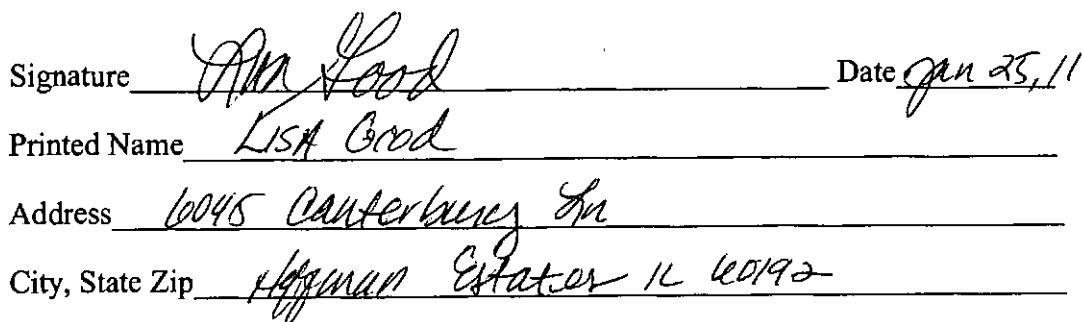 Signature Lisa Good Date Jan 25, 11
Printed Name LISA Good
Address 6045 Canterbury Ln
City, State Zip Hoffman Estates IL 60192